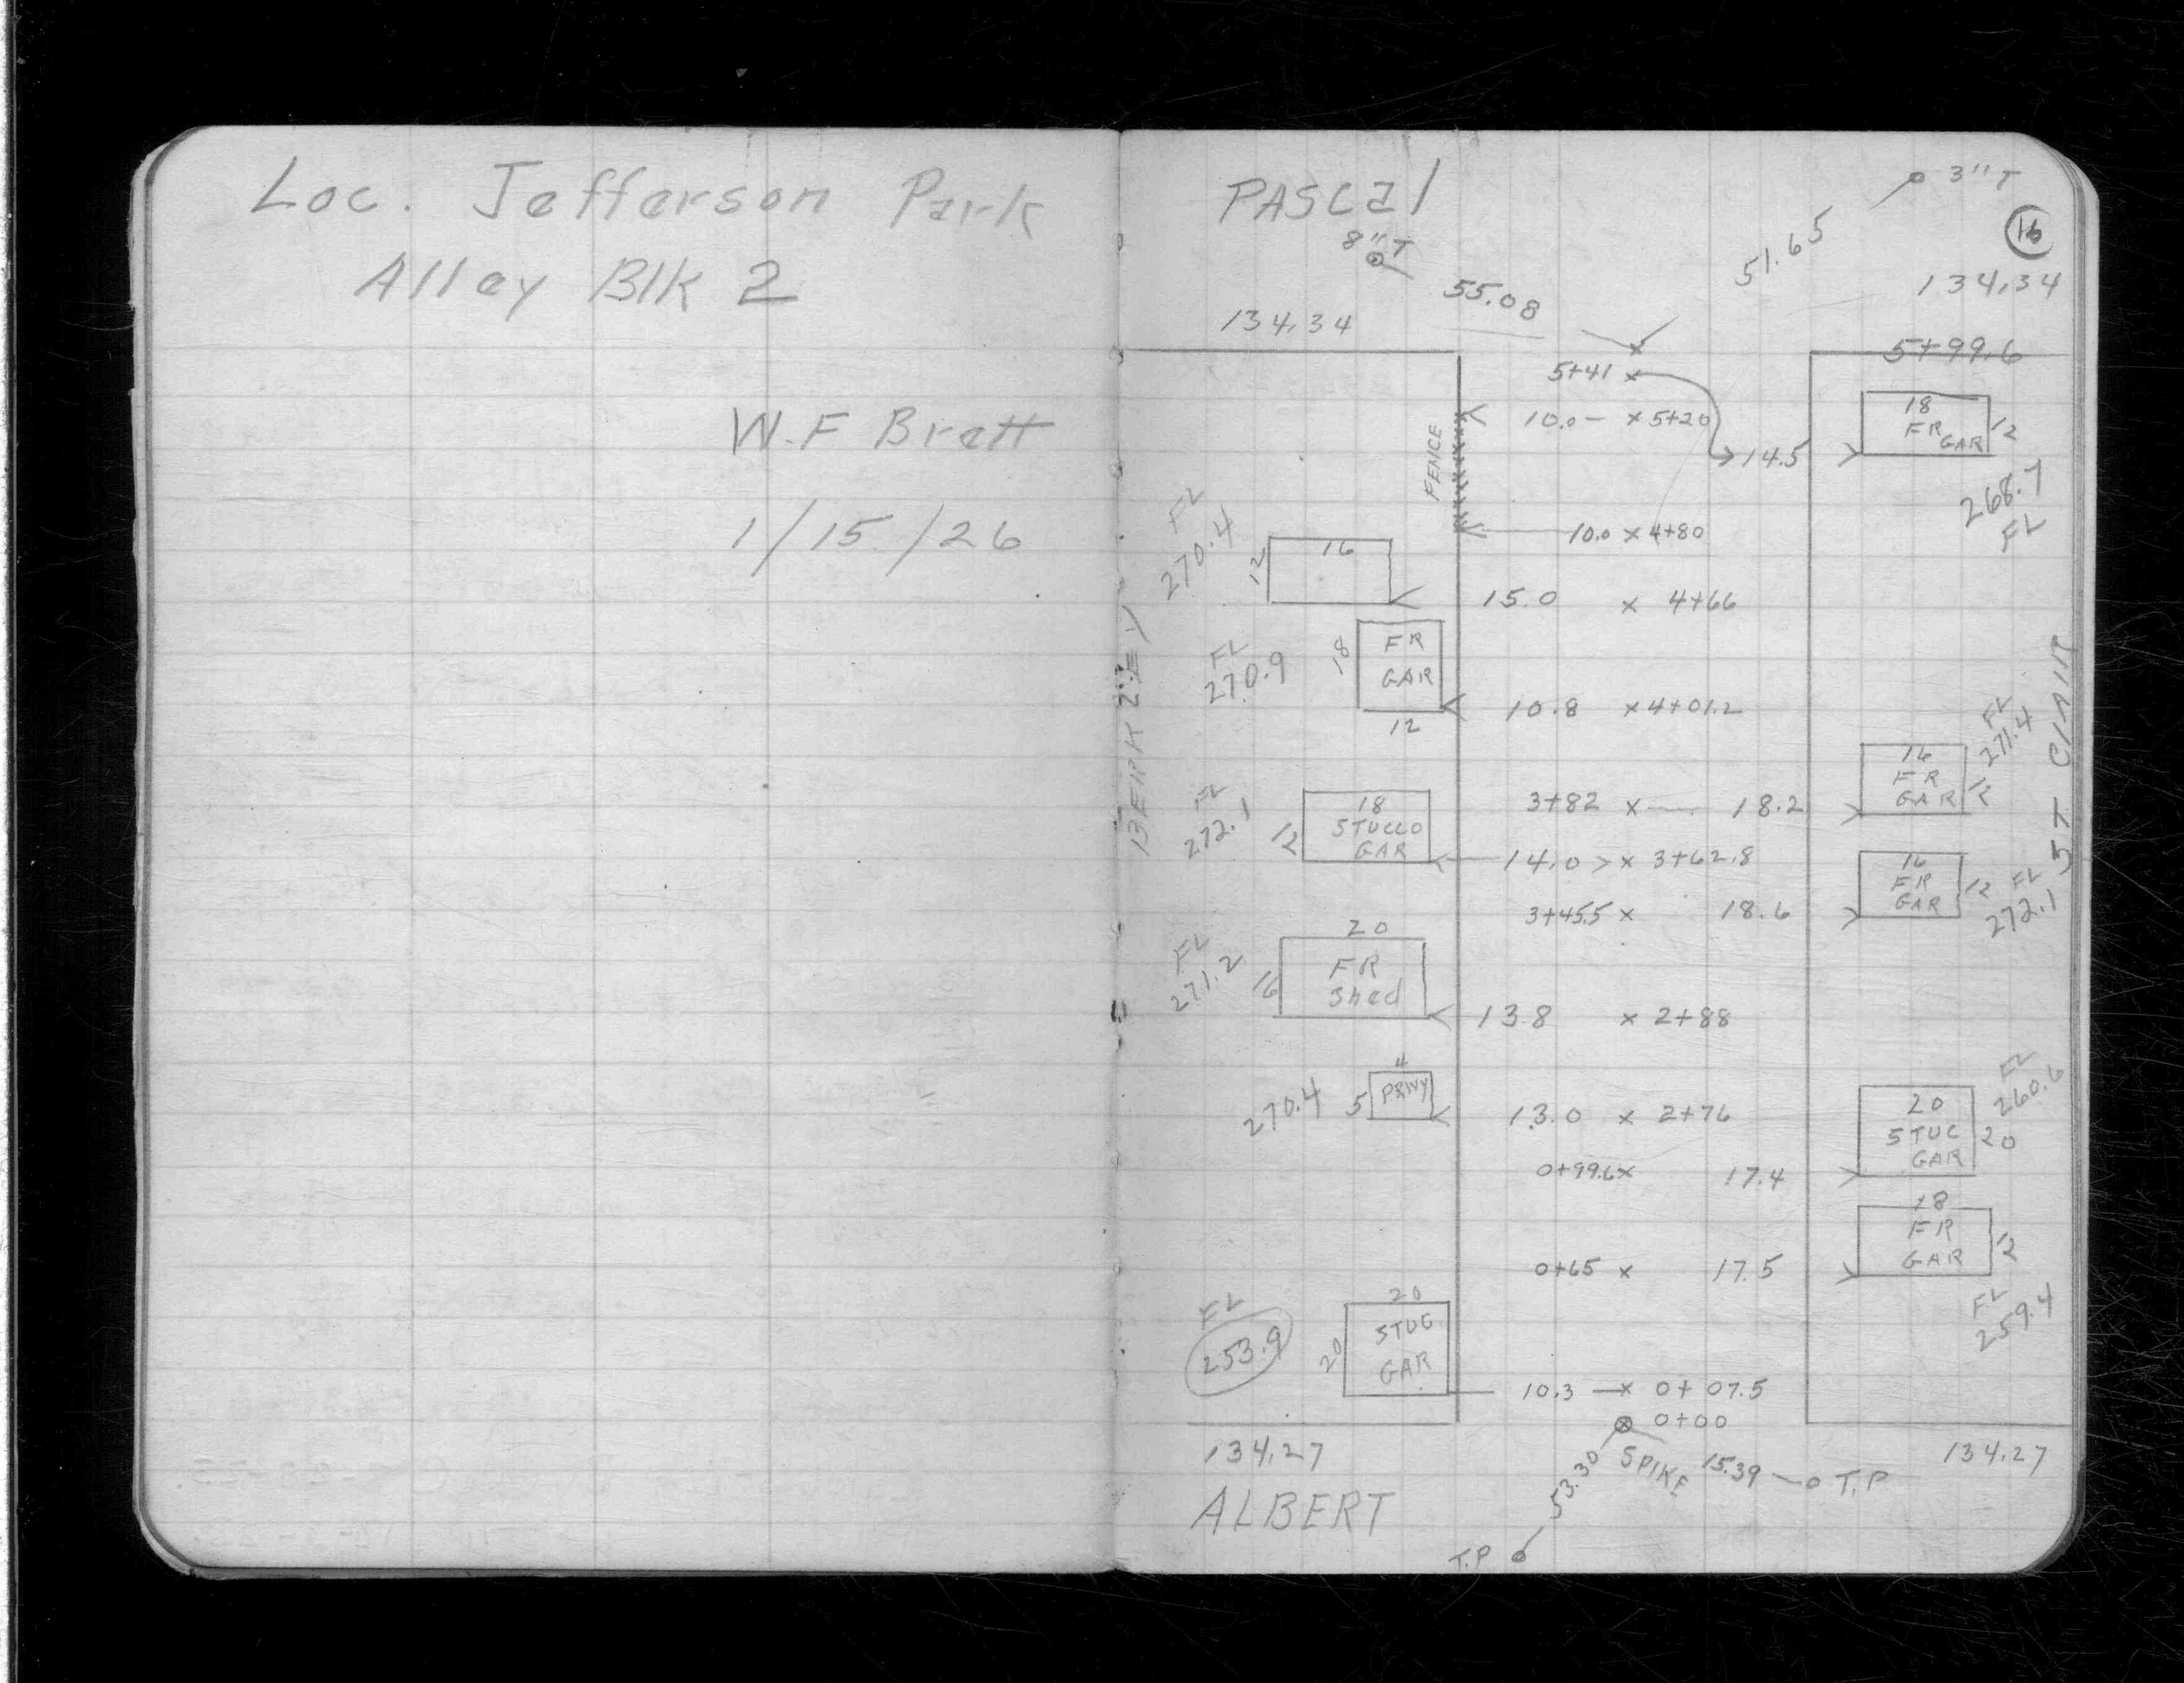 Loc. Jefferson Park
Alley Blk 2
W.F Brett
1/15/26
PASCal
3"T
16
8"T
51.65
55.08
134.34
134.34
5+99.6
5+41 x
18
FR
GAR
12
FENCE
10.0 - x 5+20
14.5
268.7
FL
FL
270.4
10.0 x 4+80
16
12
15.0 x 4+66
FL
270.9
18
FR
GAR
12
10.8 x 4+01.2
ST CLAIR
FL
271.4
16
FR
GAR
12
FL
272.1
18
STUCCO
GAR
12
3+82 x 18.2
14.0 > x 3+62.8
16
FR
GAR
12
FL
272.1
3+45.5 x 18.6
FL
271.2
20
FR
Shed
16
13.8 x 2+88
270.4
4
PRIVY
5
13.0 x 2+76
FL
260.6
20
STUC
GAR
20
0+99.6 x 17.4
18
FR
GAR
12
0+65 x 17.5
FL
259.4
FL
253.9
20
STUC
GAR
20
10.3 — x 0+07.5
0+00
134.27
SPIKE
15.39
T.P
134.27
53.30
ALBERT
T.P